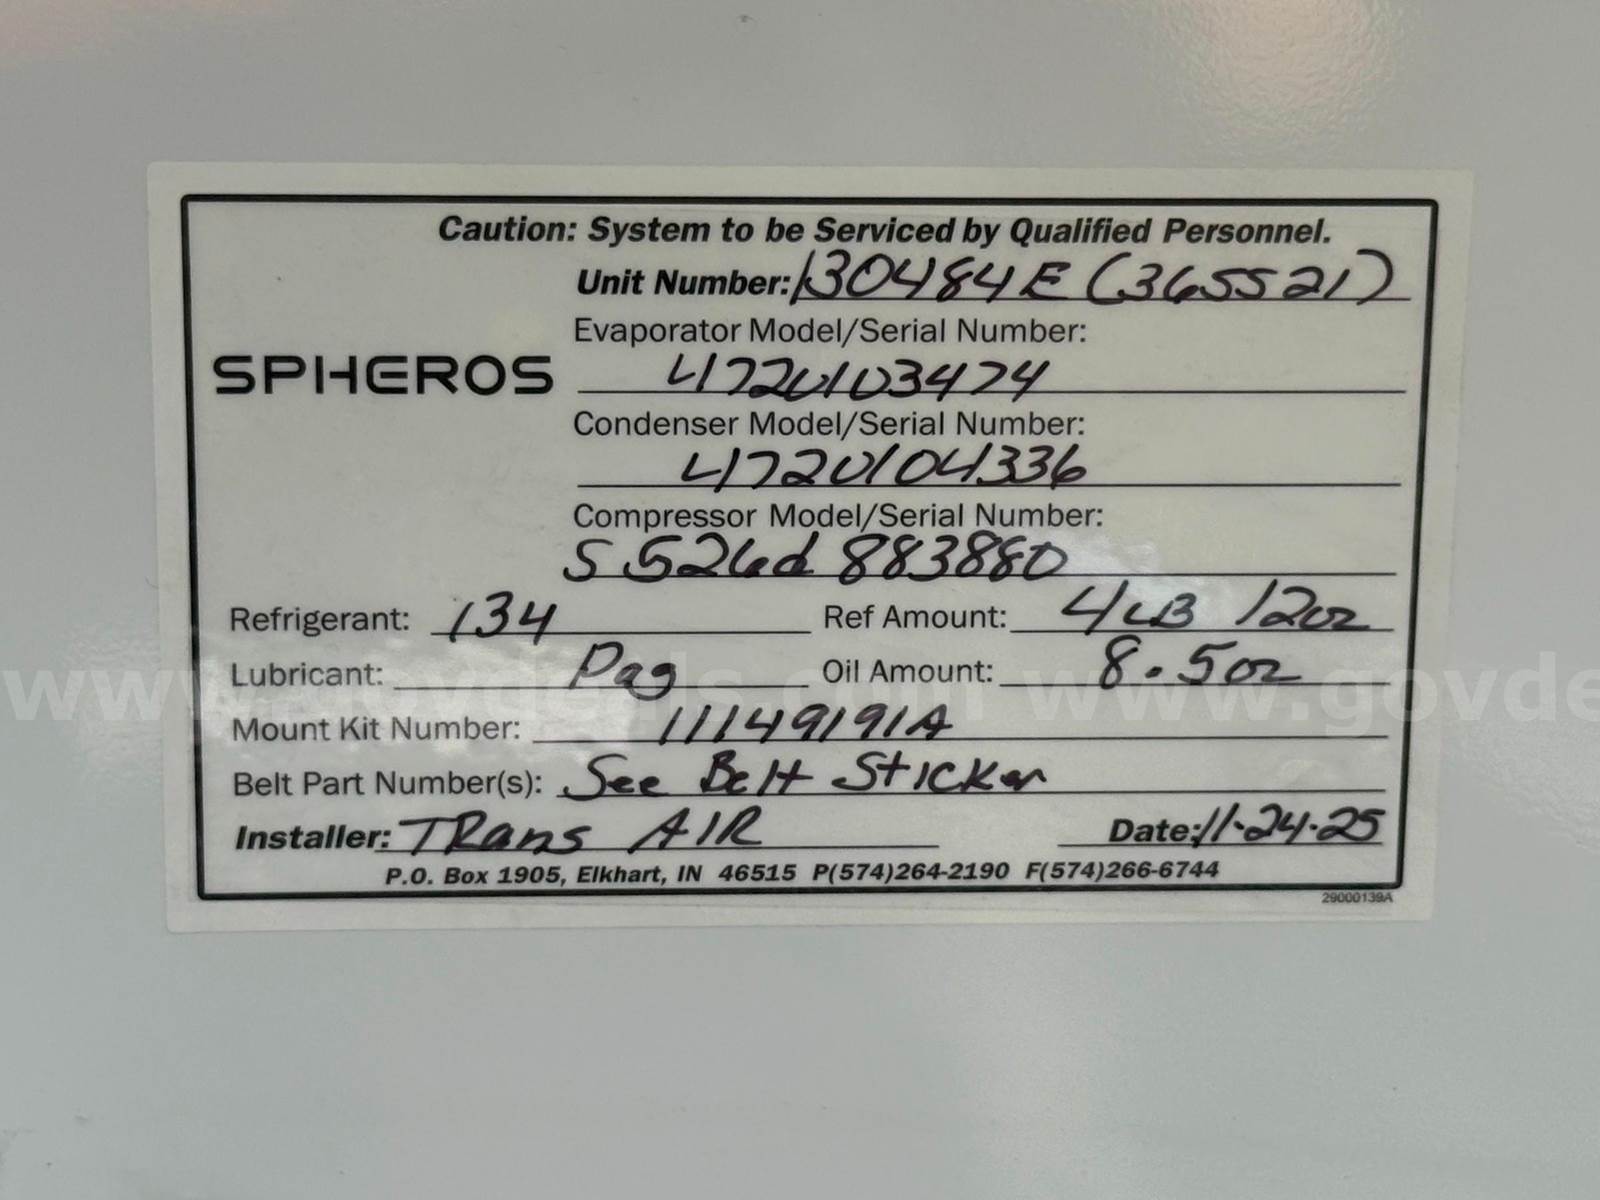 Caution: System to be Serviced by Qualified Personnel.
Unit Number: 130484E (365521)
Evaporator Model/Serial Number:
SPHEROS
41720103474
Condenser Model/Serial Number:
41720104336
Compressor Model/Serial Number:
S 526d 883880
Refrigerant: 134 Ref Amount: 4LB 12oz
Lubricant: Pag Oil Amount: 8.5oz
www.govdeals.com www.govde
Mount Kit Number: 11149191A
Belt Part Number(s): See Belt Sticker
Installer: TRans AIR Date: 11-24-25
P.O. Box 1905, Elkhart, IN 46515 P(574)264-2190 F(574)266-6744
29000139A